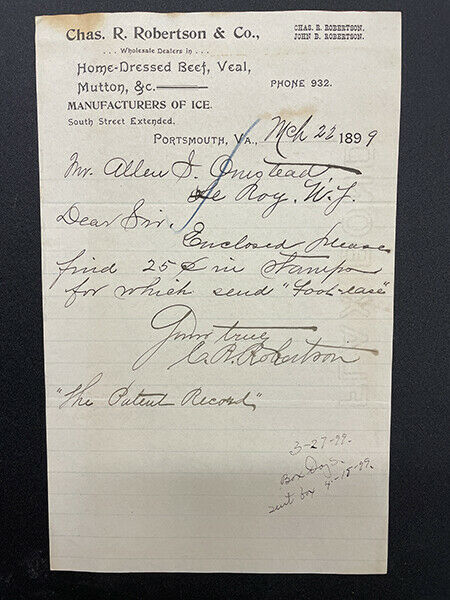 Chas. R. Robertson & Co.,
CHAS. R. ROBERTSON.
JOHN B. ROBERTSON.
... Wholesale Dealers in ...
Home-Dressed Beef, Veal,
Mutton, &c.
PHONE 932.
MANUFACTURERS OF ICE.
South Street Extended.
PORTSMOUTH, VA., Mch 22 1899
Mr. Allen S. Olmstead
Le Roy, N.Y.
Dear Sir.
Enclosed please
find 25¢ in stamps
for which send "Foot-ease"
Yours truly
C. R. Robertson
"The Patent Record"
3-27-99.
Box Days.
sent box 4-15-99.